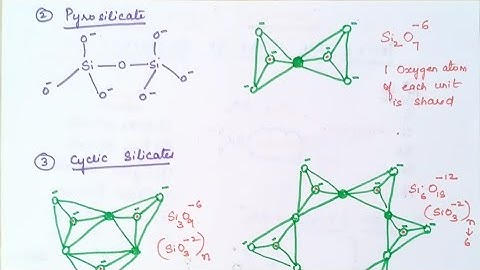 ② Pyrosilicate
O⁻ O⁻
Si O Si
O⁻ O⁻ O⁻ O⁻
Si₂O₇⁻⁶
1 Oxygen atom
of each unit
is shared
③ Cyclic Silicates
Si₃O₉⁻⁶
(SiO₃⁻²)n
Si₆O₁₈⁻¹²
(SiO₃⁻²)n
↓
6